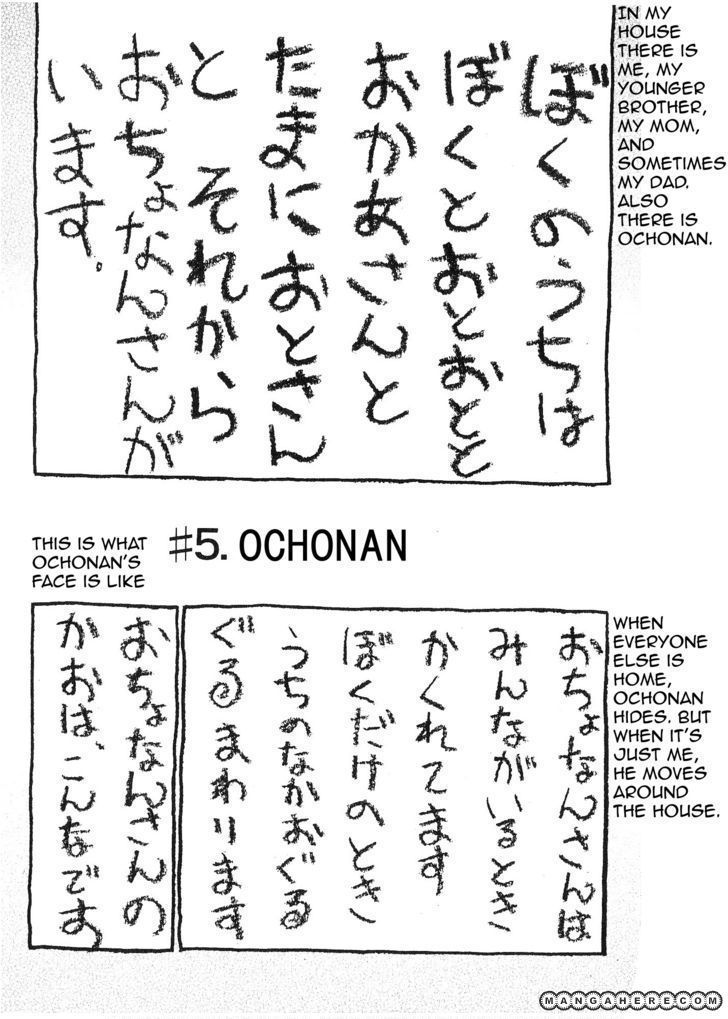 ぼくのうちは
ぼくとおとおとと
おかあさんと
たまにおとさん
と それから
おちょなんさんが
います。
IN MY
HOUSE
THERE IS
ME, MY
YOUNGER
BROTHER,
MY MOM,
AND
SOMETIMES
MY DAD.
ALSO
THERE IS
OCHONAN.
#5. OCHONAN
おちょなんさんは
みんながいるとき
かくれてます
ぼくだけのとき
うちのなかおぐる
ぐるまわります
WHEN
EVERYONE
ELSE IS
HOME,
OCHONAN
HIDES. BUT
WHEN IT'S
JUST ME,
HE MOVES
AROUND
THE HOUSE.
おちょなんさんの
かおは、こんなです
THIS IS WHAT
OCHONAN'S
FACE IS LIKE
MANGAHERE.COM